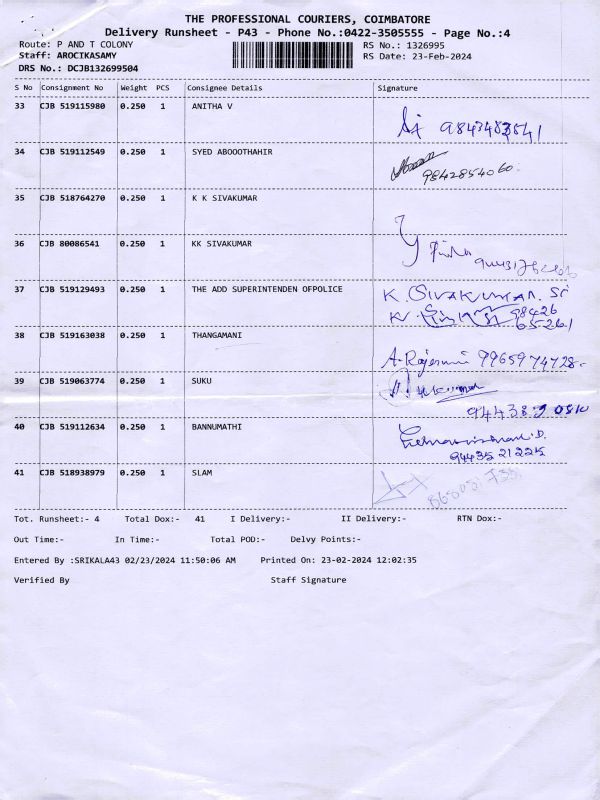 THE PROFESSIONAL COURIERS, COIMBATORE
Delivery Runsheet - P43 - Phone No.:0422-3505555 - Page No.:4
Route: P AND T COLONY RS No.: 1326995
Staff: AROCIKASAMY RS Date: 23-Feb-2024
DRS No.: DCJB132699504
S No Consignment No Weight PCS Consignee Details Signature
33 CJB 519115980 0.250 1 ANITHA V
34 CJB 519112549 0.250 1 SYED ABOOOTHAHIR
9842854060
35 CJB 518764270 0.250 1 K K SIVAKUMAR
36 CJB 80086541 0.250 1 KK SIVAKUMAR
37 CJB 519129493 0.250 1 THE ADD SUPERINTENDEN OFPOLICE K. SIVAKUMAR. SI
98426
65261
38 CJB 519163038 0.250 1 THANGAMANI
9965974728
39 CJB 519063774 0.250 1 SUKU
40 CJB 519112634 0.250 1 BANNUMATHI
94435 21225
41 CJB 518938979 0.250 1 SLAM
Tot. Runsheet:- 4 Total Dox:- 41 I Delivery:- II Delivery:- RTN Dox:-
Out Time:- In Time:- Total POD:- Delvy Points:-
Entered By :SRIKALA43 02/23/2024 11:50:06 AM Printed On: 23-02-2024 12:02:35
Verified By Staff Signature